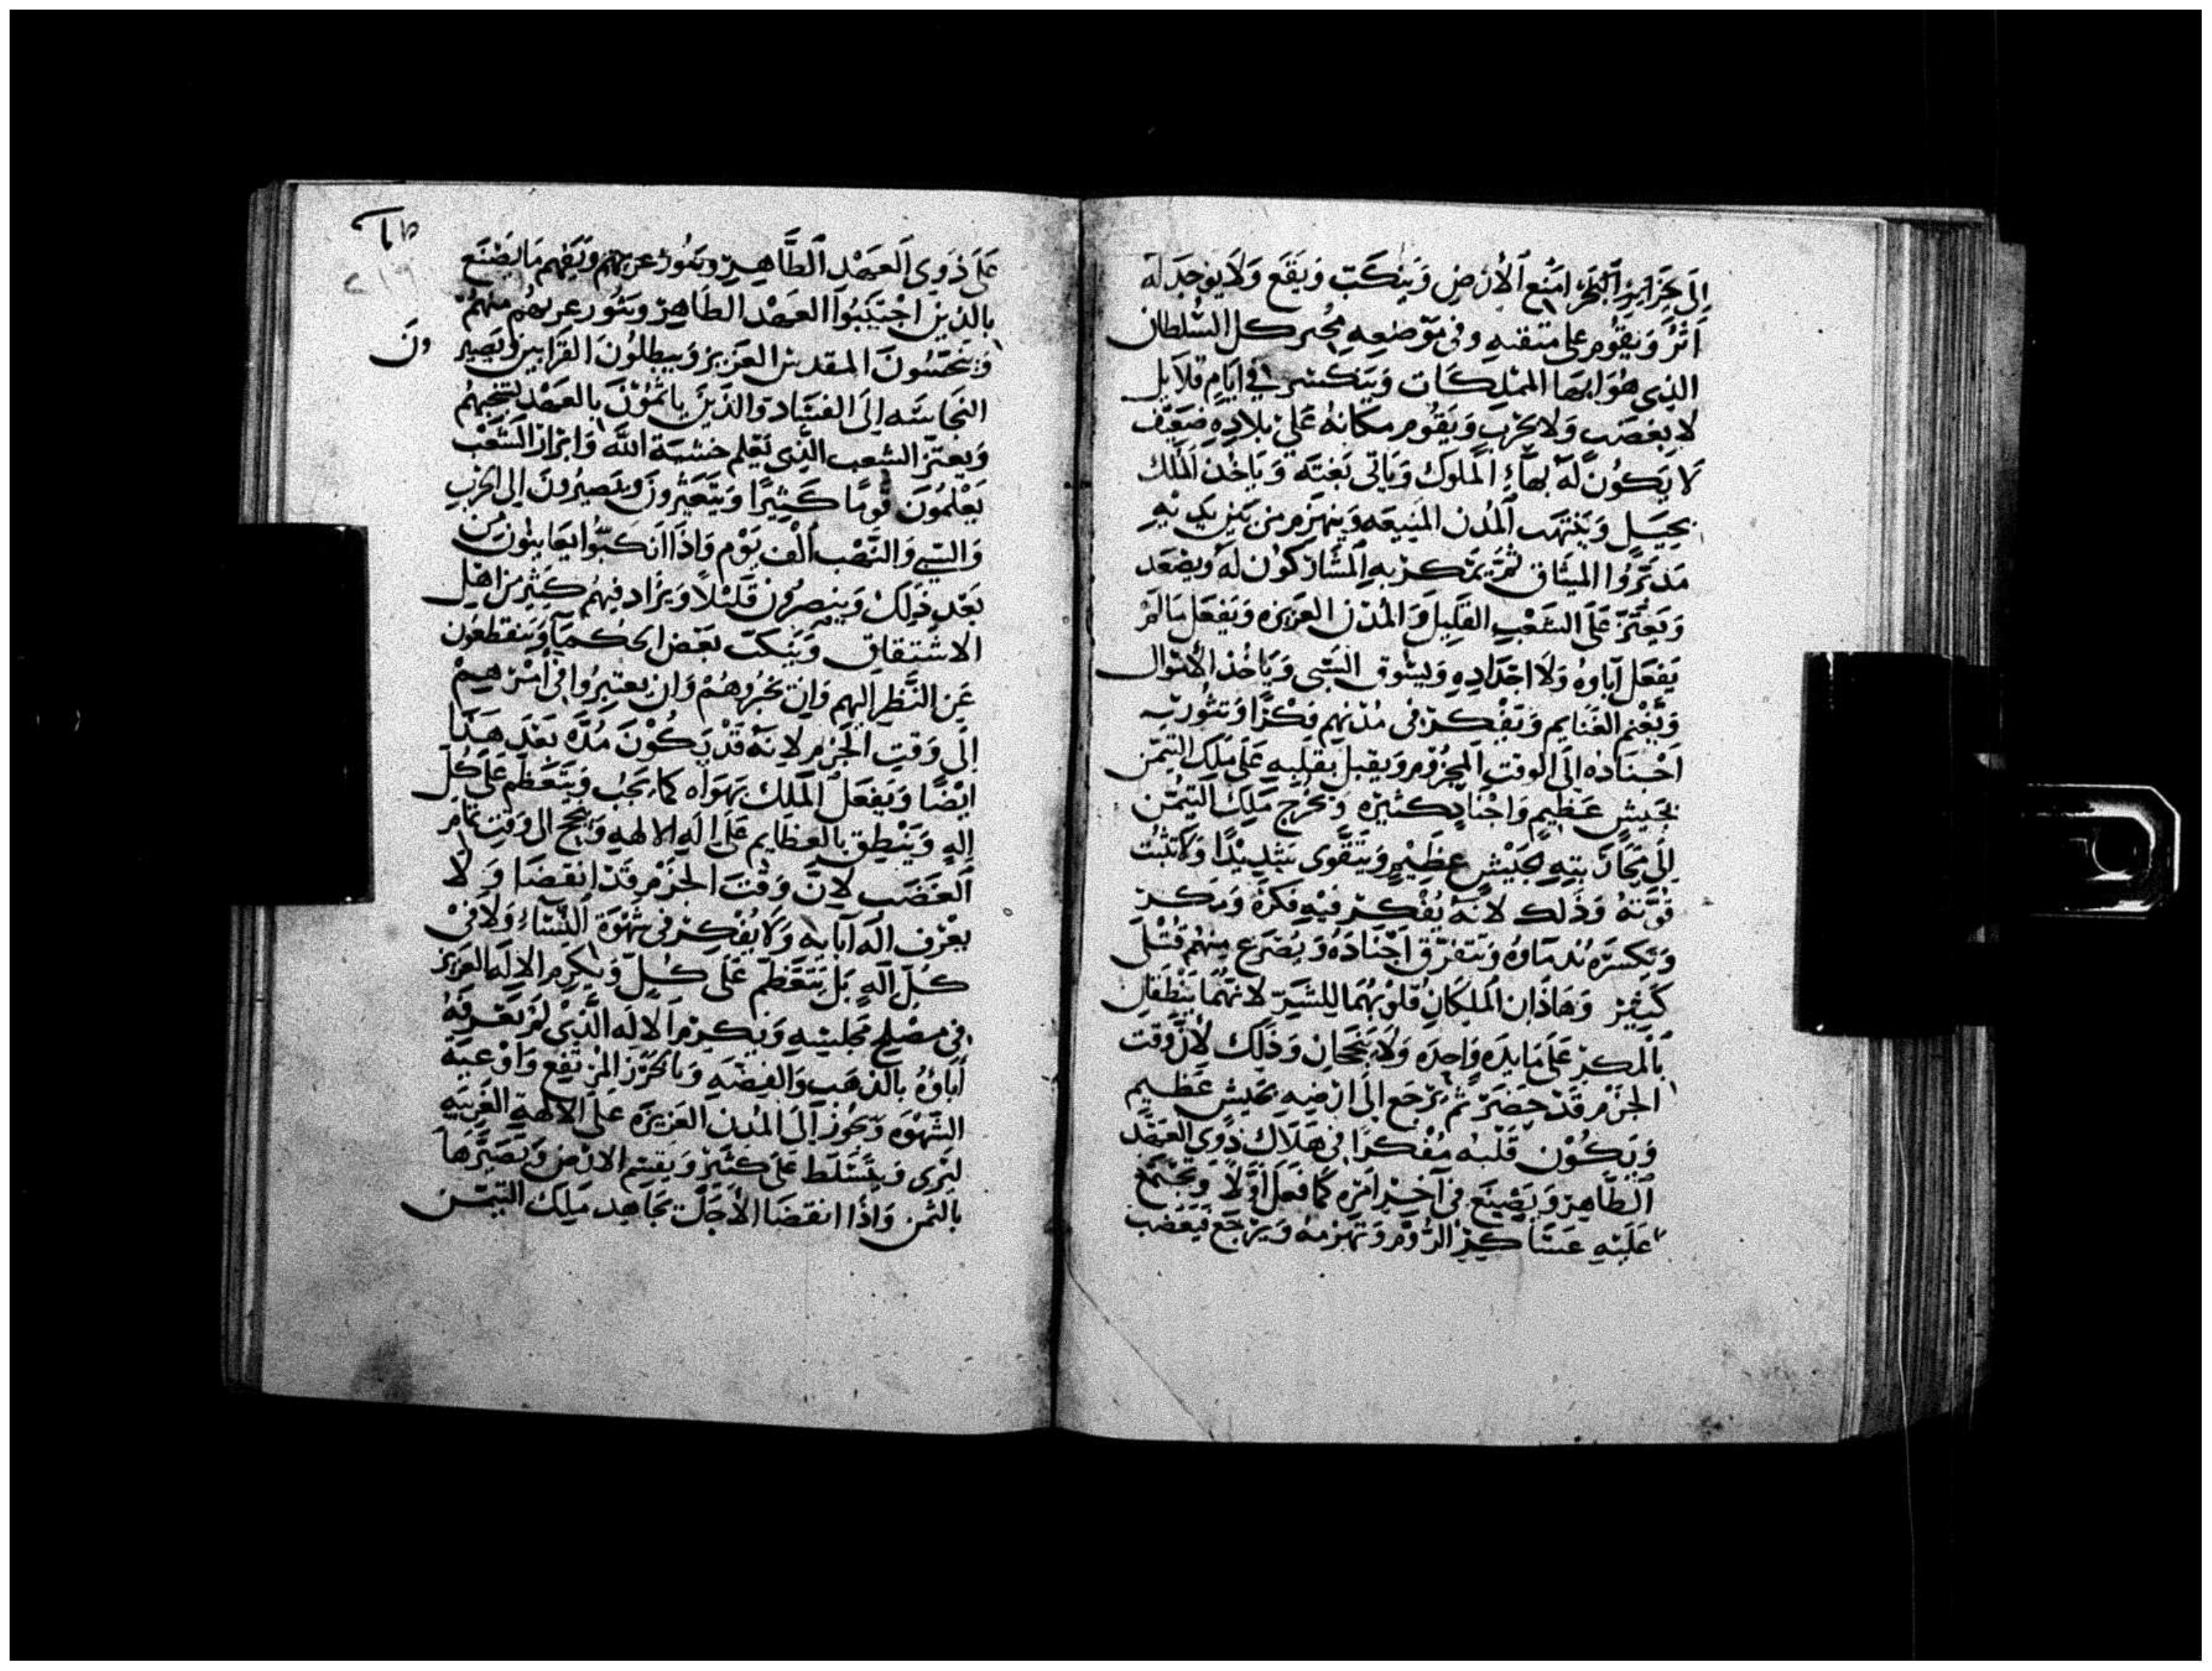 إلى جزاير البحر امنع الأرض وينكب ويقع ولا يوجد له
اثر ويقوم على متقنه وفي موضعه مجبر كل السلطان
الذي هو ابها المملكات وينكسر في ايام قلايل
لا بغضب ولا بحرب ويقوم مكانه على بلاده ضعيف
لا يكون له بهاء الملوك وياتي بغته وياخذ الملك
بحيل وينتهب المدن المنيعه وينهزم من بين يديه
مدبروا الميثاق ثم يمكر به المشاركون له ويصعد
ويعتز على الشعب القليل والمدن العزيزه ويفعل ما لم
يفعل آباوه ولا اجداده ويسوق السبي وياخذ الاموال
ويغنم الغنايم ويفكر في مدنهم فكرا وتثور به
اجناده إلى الوقت المجزوم ويقبل بقلبه على ملك التيمن
بجيش عظيم واجناد كثيره ويخرج ملك التيمن
إلى محاربته بجيش عظيم ويتقوى شديدا ولا تثبت
قوته وذلك لانه يفكر فيه فكرة ومكر
وتكسره ندماوه وتتفرق اجناده ويصرع منهم قتلى
كثير وهاذان الملكان قلوبهما للشر لانهما ينطقان
بالمكر على مايده واحده ولا ينجحان وذلك لان وقت
الجزم قد حضر ثم يرجع إلى ارضه بجيش عظيم
ويكون قلبه مفكرا في هلاك ذوي العهد
الطاهر ويصنع في آخر امره كما فعل اولا ويجتمع
عليه عساكر الروم وتهزمه ويرجع فيغضب
ط
٢١٩
على ذوي العهد الطاهر ويثور عزبهم ويفهم ما يصنع
بالذين اجتنبوا العهد الطاهر ويثور عزبهم منهم
وينجسون المقدس العزيز ويبطلون القرابين ويصير ون
النجاسه إلى الفساد والذين ياثمون بالعهد
ويعتز الشعب الذي يعلم خشية الله وابرار الشعب
يعلمون قوما كثيرا ويتعثرون ويصيرون إلى الحرب
والسبي والنهب الف يوم واذا انكبوا يعاينون من
بعد ذلك وينصرون قليلا ويزاد فيهم كثير من اهل
الاشتقاق وينكب بعض الحكما وينقطعون
عن النظر اليهم وان يخبروهم وان يعتبروا في امرهم
إلى وقت الجزم لانه قد يكون مده بعد هذا
ايضا ويفعل الملك بهواه كما يحب ويتعظم على كل
إله وينطق بالعظايم على اله الالهه وينجح الى وقت تمام
الغضب لان وقت الجزم قد انقضا ولا
يعرف اله آبايه ولا يفكر في شهوة النساء ولا في
كل اله بل يتعظم على كل ويكرم الاله العزيز
في مصلح مجلسه ويكرم الاله الذي لم تعرفه
اباوه بالذهب والفضه وبالحرز المرتفع واوعية
الشهوه ويجوز إلى المدن العزيزه على الالهة الغريبه
ليرى ويتسلط على كثير ويقسم الارض ويصيرها
بالثمن واذا انقضا الاجل يجاهد ملك التيمن